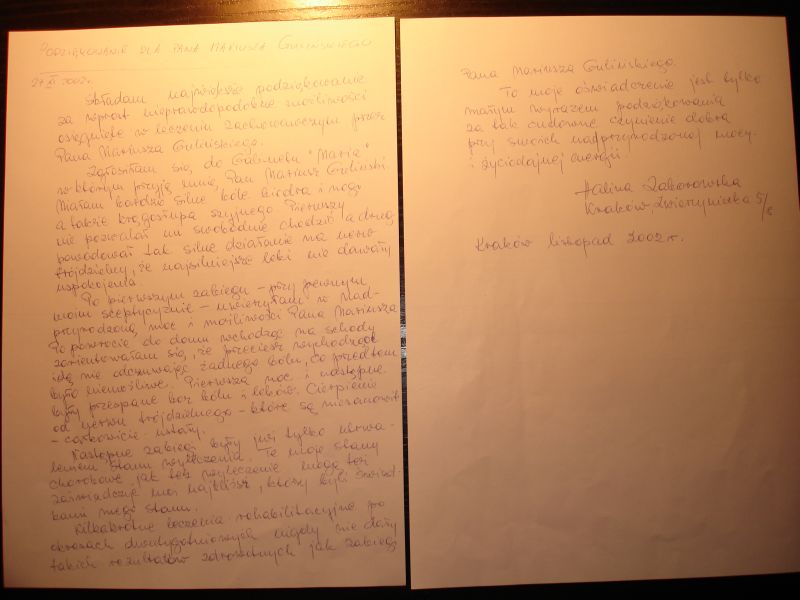 PODZIĘKOWANIE DLA PANA MARIUSZA GULIŃSKIEGO
27 XI 2002r.
Składam najwyższe podziękowanie
za wprost nieprawdopodobne możliwości
osiągnięte w leczeniu zachowawczym przez
Pana Mariusza Gulińskiego.
Zgłosiłam się do Gabinetu "Maria"
w którym przyjął mnie Pan Mariusz Guliński.
Miałam bardzo silne bóle biodra i nogi
a także kręgosłupa szyjnego. Pierwszy
nie pozwalał mi swobodnie chodzić a drugi
powodował tak silne działanie na nerw
trójdzielny, że najsilniejsze leki nie dawały
uspokojenia.
Po pierwszym zabiegu - przy pewnym
moim sceptycyźmie - uwierzyłam w nad-
przyrodzoną moc i możliwości Pana Mariusza
Po powrocie do domu wchodząc na schody
zorientowałam się, że przecież wychodząc
idę nie odczuwając żadnego bólu, co przedtem
było niemożliwe. Pierwsza noc i następne
były przespane bez bólu i leków. Cierpienie
od nerwu trójdzielnego - które są niesamowite
- całkowicie ustały.
Następne zabiegi były już tylko utrwa-
leniem stanu wyleczenia. Te moje stany
chorobowe jak też wyleczenie mogą też
zaświadczyć moi najbliżsi, którzy byli świad-
kami mego stanu.
Kilkakrotne leczenia rehabilitacyjne po
okresach dwutygodniowych nigdy nie dały
takich rezultatów zdrowotnych jak zabiegi
Pana Mariusza Gulińskiego.
To moje oświadczenie jest tylko
małym wyrazem podziękowania
za tak cudowne czynienie dobra
przy swoich nadprzyrodzonej mocy
i życiodajnej energii.
Halina Zaborowska
Kraków, Zwierzyniecka 5/8
Kraków listopad 2002 r.